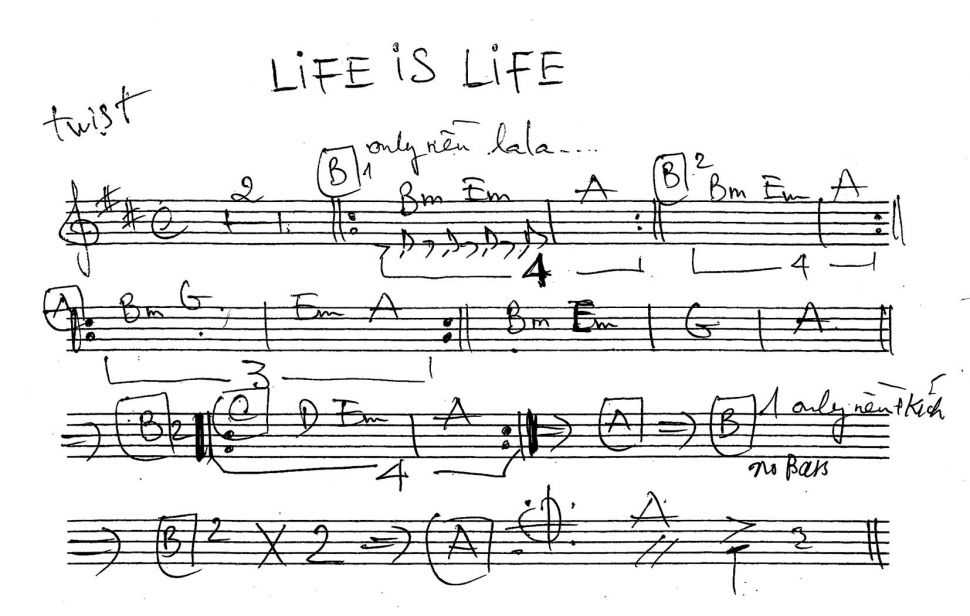 LiFE iS LiFE
twist
only nền lala....
2 B1 Bm Em A B2 Bm Em A
4 4
A Bm G Em A Bm Em G A
3
⇒ B2 C D Em A ⇒ A ⇒ B 1 only nền + kích
4 no Bass
⇒ B2 X 2 ⇒ A A